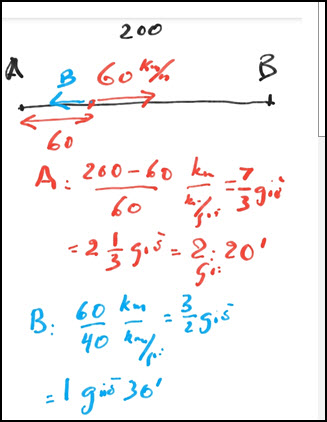 200
A B 60 km/h B
60
A: 200-60/60 km/km/giờ = 7/3 giờ
= 2 1/3 giờ = 2 giờ: 20'
B: 60/40 km/km/giờ = 3/2 giờ
= 1 giờ 30'